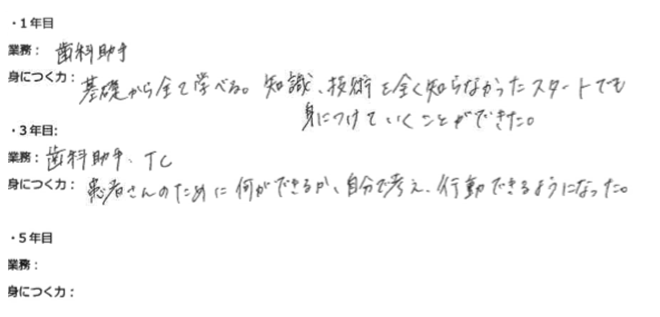 ・1年目
業務： 歯科助手
身につく力： 基礎から全て学べる。知識、技術を全く知らなかったスタートでも
身につけていくことができた。
・3年目:
業務： 歯科助手、TC
身につく力： 患者さんのために何ができるか、自分で考え、行動できるようになった。
・5年目
業務：
身につく力：